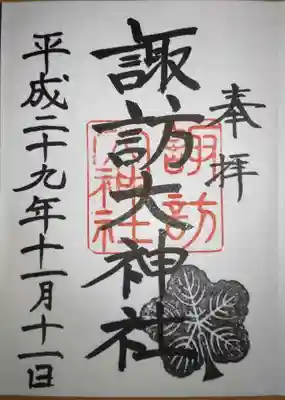 奉拝
諏訪大神社
諏訪
神社
平成二十九年十一月十一日